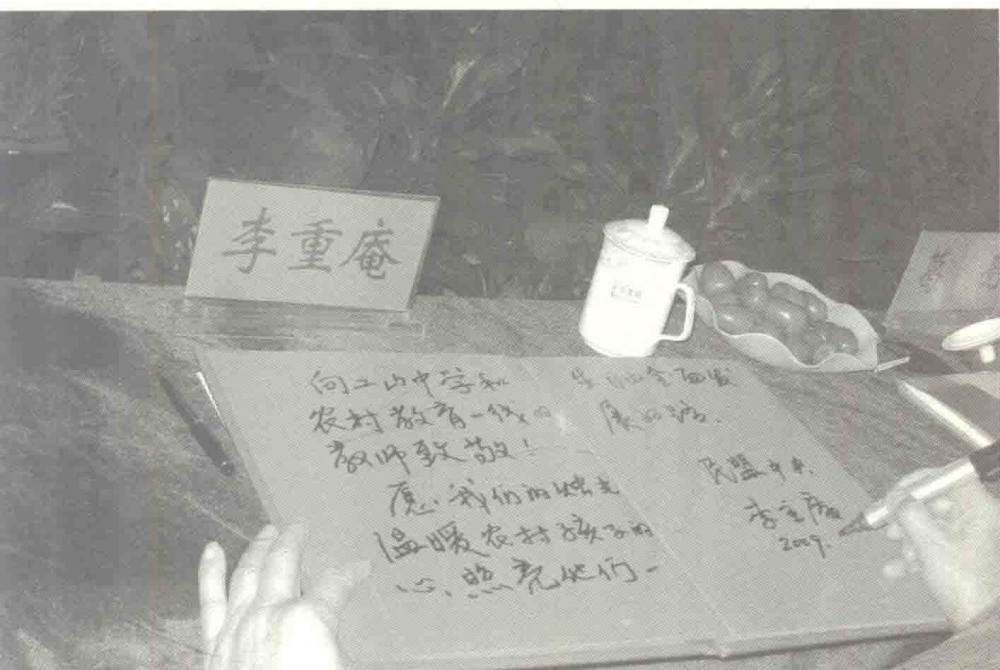 李重庵
向二山中学和
农村教育一线的
教师致敬!
愿我们的烛光
温暖农村孩子的
心,照亮他们
生命全面发
展的路.
民盟中央
李重庵
2009.